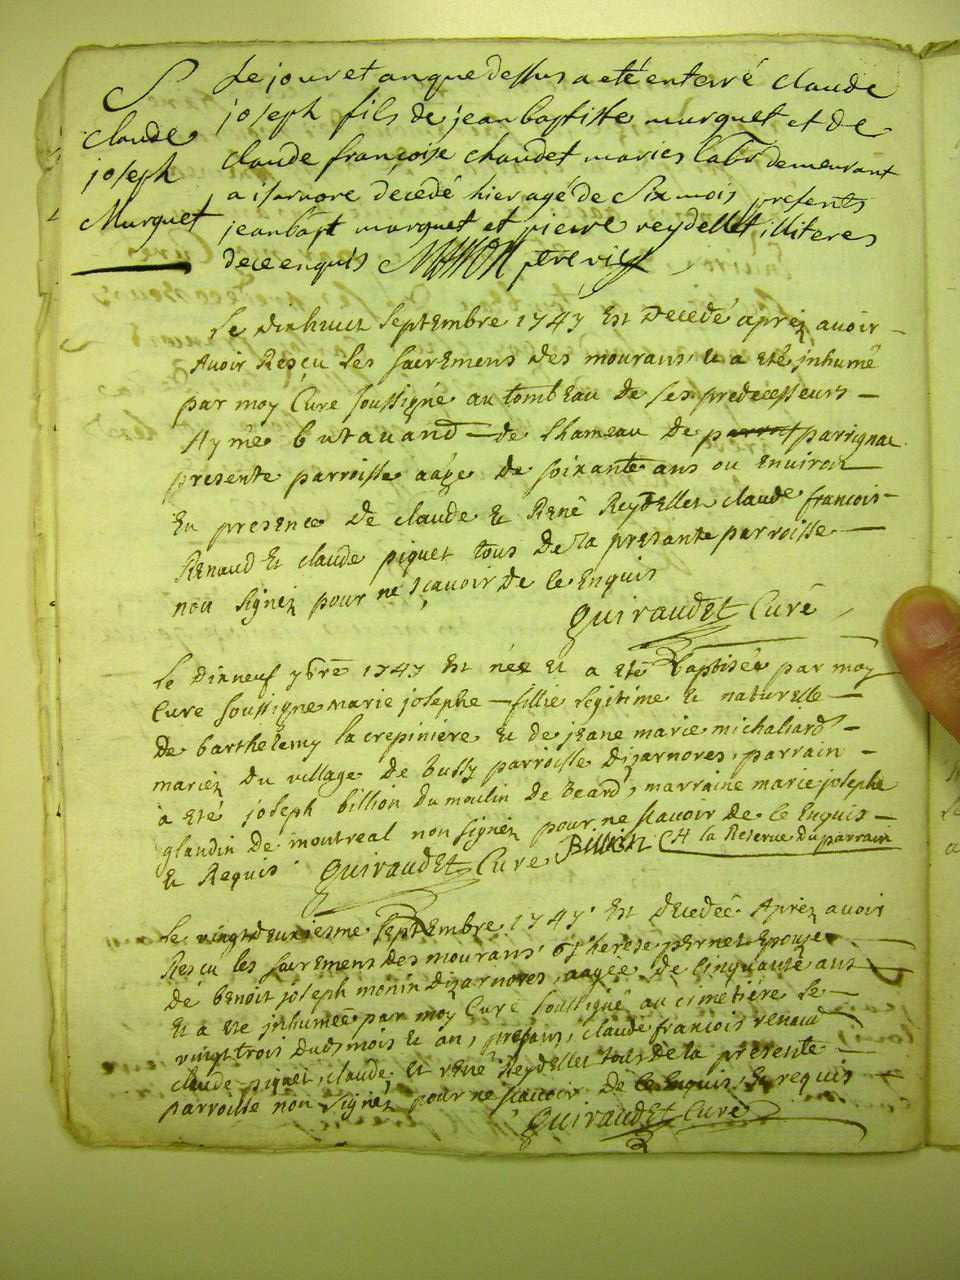 S
Claude
joseph
Murquet
Le jour et an que dessus a eté enterré claude
joseph fils de jean baptiste murquet et de
claude françoise chaudet maries lab demeurant
a isarnore décedé hier agé de Six mois presents
jean bapt murquet et pierre reydellet illiteres
de ce enquis pre vic
Le dixhuict Septembre 1747 Est Decedé aprez avoir
Avoir Resçu les sacremens des mourans, & a eté jnhumé
par moy Curé soussigné au tombeau de ses predecesseurs
Aymée butavand de l'hameau de parrignac
presente parroisse aage de soixante ans ou Environ
En presence de claude & René Reydellet claude francois
Renaud Et claude piquet tous De la presante parroisse
non signez pour ne sçavoir de ce Enquis
Guiraudet Curé
Le Dixneuf 7bre 1747 Est née Et a eté baptisée par moy
Curé soussigne marie josephe fillie legitime & naturelle
De barthelemy la crepiniere & de jeane marie michaliard
mariez du village de bussy parroisse dizarnores, parrain
à eté joseph billion du moulin de Beard, marraine marie josephe
glandin de montreal non signez pour ne scavoir de ce Enquis
& Requis Guiraudet Curé Billion A la Reserve du parrain
Le vingtdeuxiesme Septembre 1747 Est decedée Aprez avoir
Resçu les sacremens des mourans therese pernet Epouse
de benoit joseph monin dizarnores, aagée de Cinquante ans
Et a ete jnhumée par moy Curé soussigné au cimetière le
vingt trois dud mois & an, presans, claude francois renaud
claude piquet, claude Et rené Reydellet tous de la presente
parroisse non signez pour ne scavoir de ce Enquis & requis
Guiraudet Curé